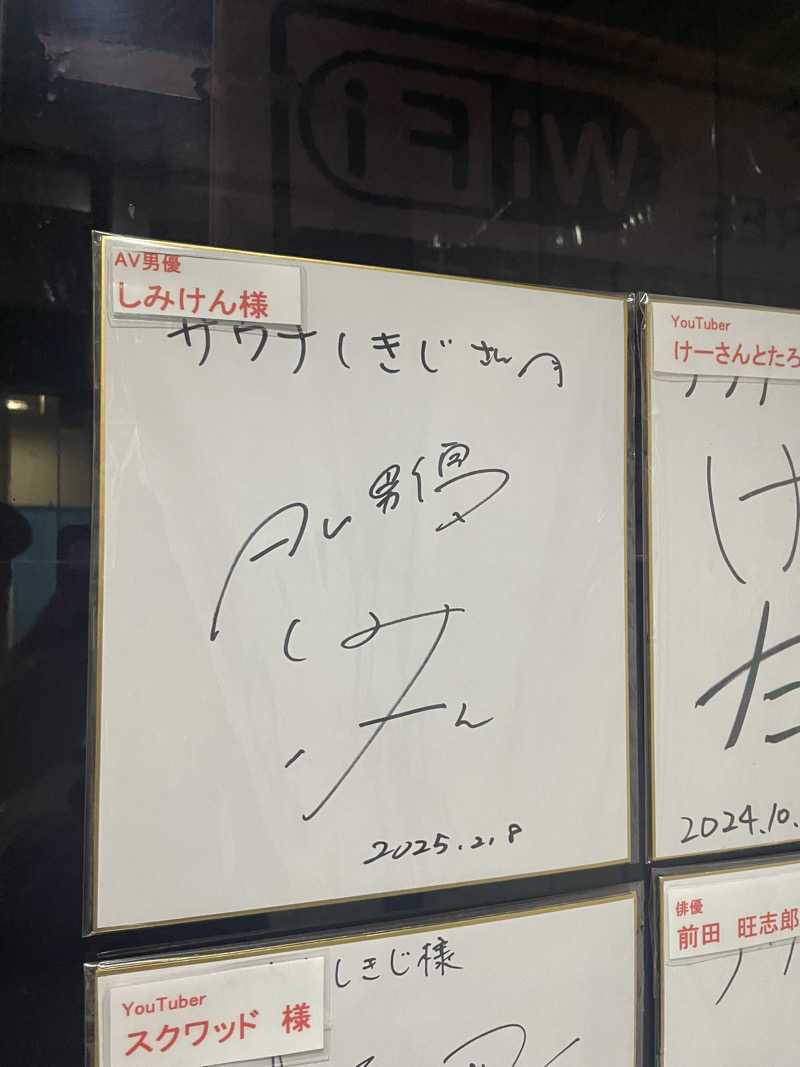 WiFi
AV男優
しみけん様
サウナしきじさん江
AV男優
しみけん
2025.2.8
YouTuber
けーさんとたろ
け
た
2024.10.
YouTuber
スクワッド 様
しきじ様
俳優
前田 旺志郎